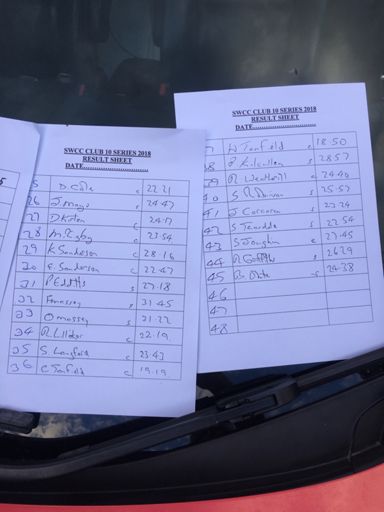 5
SWCC CLUB 10 SERIES 2018
RESULT SHEET
DATE
5 D. Cole c 22.21
26 J. Mayo s 24.47
27 D c 24.17
28 M. Rigby c 23.54
29 K Sanderson c 28.16
30 F. Sanderson c 22.47
31 P Edditts s 27.18
32 Fennessy s 31.45
33 O s 21.22
34 R. c 22.19
35 S. Langford c 23.43
36 C Tanfield c 19.19
SWCC CLUB 10 SERIES 2018
RESULT SHEET
DATE
7 W Tanfield c 18.50
38 s 28.57
39 R Weatherill c 24.40
40 S s 25.57
41 J Corcoran s 27.24
42 S c 22.54
43 S c 27.45
44 R s 26.29
45 B s 24.38
46
47
48